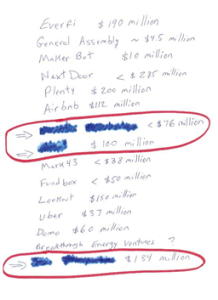 Everfi $190 million
General Assembly ~ $4.5 million
Maker Bot $10 million
Next Door < $285 million
Plenty $200 million
Airbnb $112 million
< $76 million
$100 million
Mark43 < $38 million
Fundbox < $50 million
Lookout $150 million
Uber $37 million
Domo $60 million
Breakthrough Energy Ventures ?
$134 million